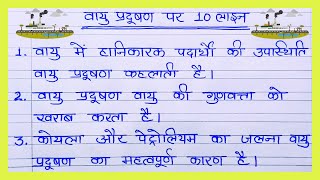 वायु प्रदूषण पर 10 लाइन
1. वायु में हानिकारक पदार्थों की उपस्थिति
वायु प्रदूषण कहलाती है।
2. वायु प्रदूषण वायु की गुणवत्ता को
खराब करता है।
3. कोयला और पेट्रोलियम का जलना वायु
प्रदूषण का महत्वपूर्ण कारण है।